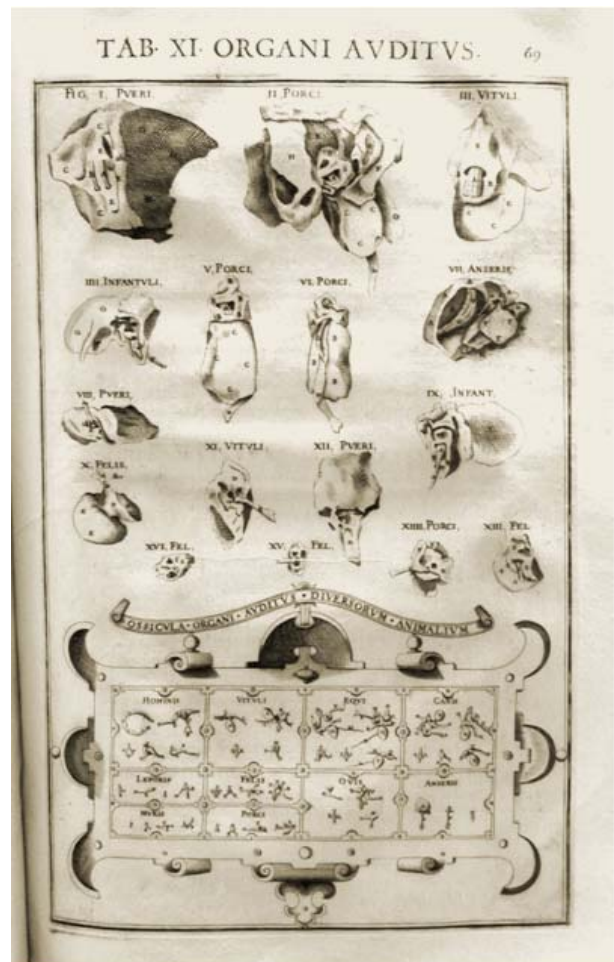 TAB. XI. ORGANI AVDITVS. 69
FIG. I, PVERI. II, PORCI. III, VITVLI.
IIII, INFANTVLI. V, PORCI, VI, PORCI, VII, ANSERIS,
VIII, PVERI, IX, INFANT.
X, FELIS. XI, VITVLI, XII, PVERI,
XVI, FEL. XV, FEL, XIIII, PORCI, XIII, FEL
OSSICVLA · ORGANI · AVDITVS · DIVERSORVM · ANIMALIVM
HOMINIS VITVLI EQVI CANIS
LEPORIS FELIS OVIS ANSERIS
MVRIS PORCI